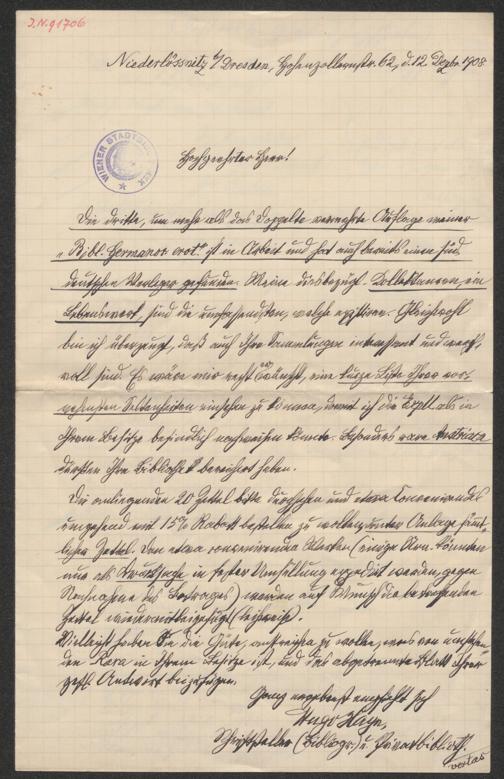 J.N. 91706
Niederlössnitz b/Dresden, Hohenzollernstr. 62, d. 12. Dezbr. 1908.
WIENER STADTBIBLIOTHEK
Hochgeehrter Herr!
Die dritte, um mehr als das Doppelte vermehrte Auflage meiner
„Bibl. Germanor. erot.“ ist in Arbeit und hat auch bereits einen
deutschen Verleger gefunden. Meine diesbezügl. Kollektaneen, ein
Lebenswerk, sind die umfassendsten, welche existiren. Gleichwohl
bin ich überzeugt, daß auch Ihre Sammlungen interessant und werth-
voll sind. Es wäre mir recht erwünscht, eine kurze Liste Ihrer
Seltenheiten einsehen zu können, damit ich die Expll. als in
Ihrem Besitze befindlich nachweisen könnte. Besonders rare Austriaca
dürften Ihre Bibliothek bereichert haben.
Die anliegenden 20 Zettel bitte durchsehen und etwa Convenirendes
umgehend mit 15% Rabatt bestellen zu wollen, unter Anlage sämt-
licher Zettel. Den etwa convenirenden Werken (einige Nrn. könnten
nur als Drucksache in fester Umhüllung expedirt werden, gegen
Nachnahme des Betrages) werden auf Wunsch die betreffenden
Zettel wieder mitbeigefügt (leihweise).
Vielleicht haben Sie die Güte, anstreichen zu wollen, was von
den Rara in Ihrem Besitze ist, und das abgetrennte Blatt Ihrer
gefl. Antwort beizufügen.
Ganz ergebenst empfiehlt sich
Hugo Hayn,
Schriftsteller (Bibliogr.) u. Privatbiblioth.
vertas